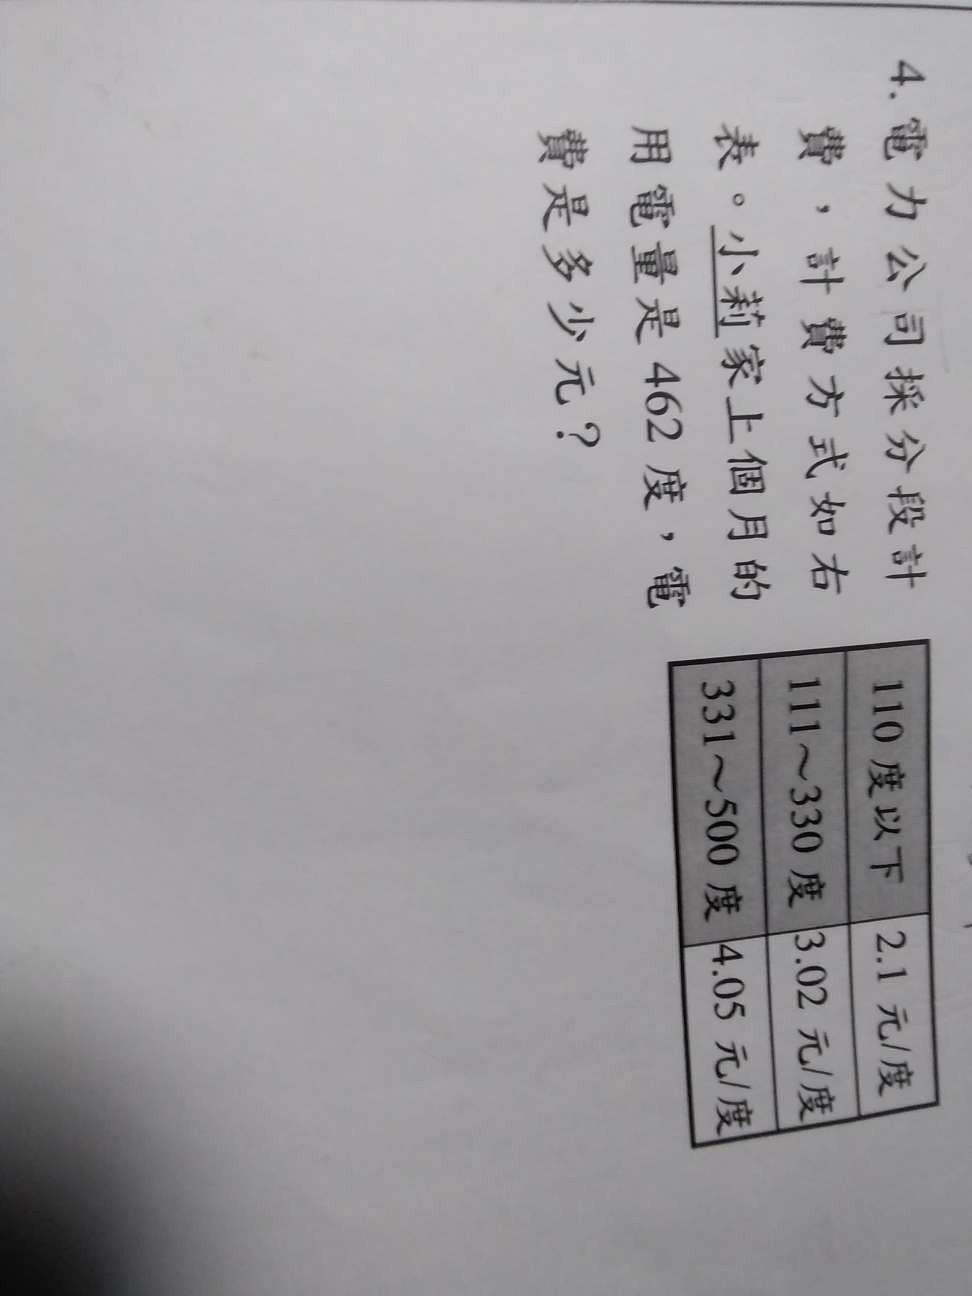 4. 電力公司採分段計
費，計費方式如右
表。小莉家上個月的
用電量是 462 度，電
費是多少元？
110 度以下 2.1 元/度
111～330 度 3.02 元/度
331～500 度 4.05 元/度